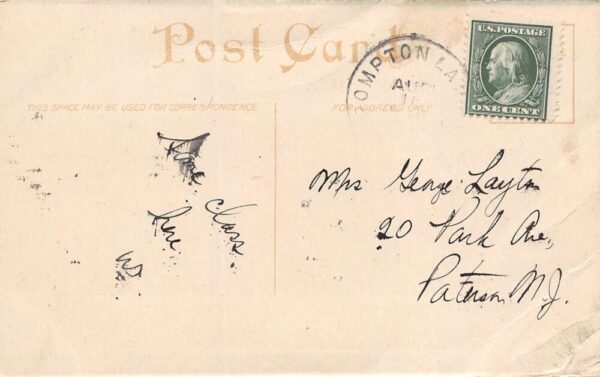 Post Card
OMPTON LA
AUG
U.S. POSTAGE
ONE CENT
THIS SPACE MAY BE USED FOR CORRESPONDENCE
FOR ADDRESS ONLY
Class
Mrs George Layton
20 Park Ave,
Paterson N.J.